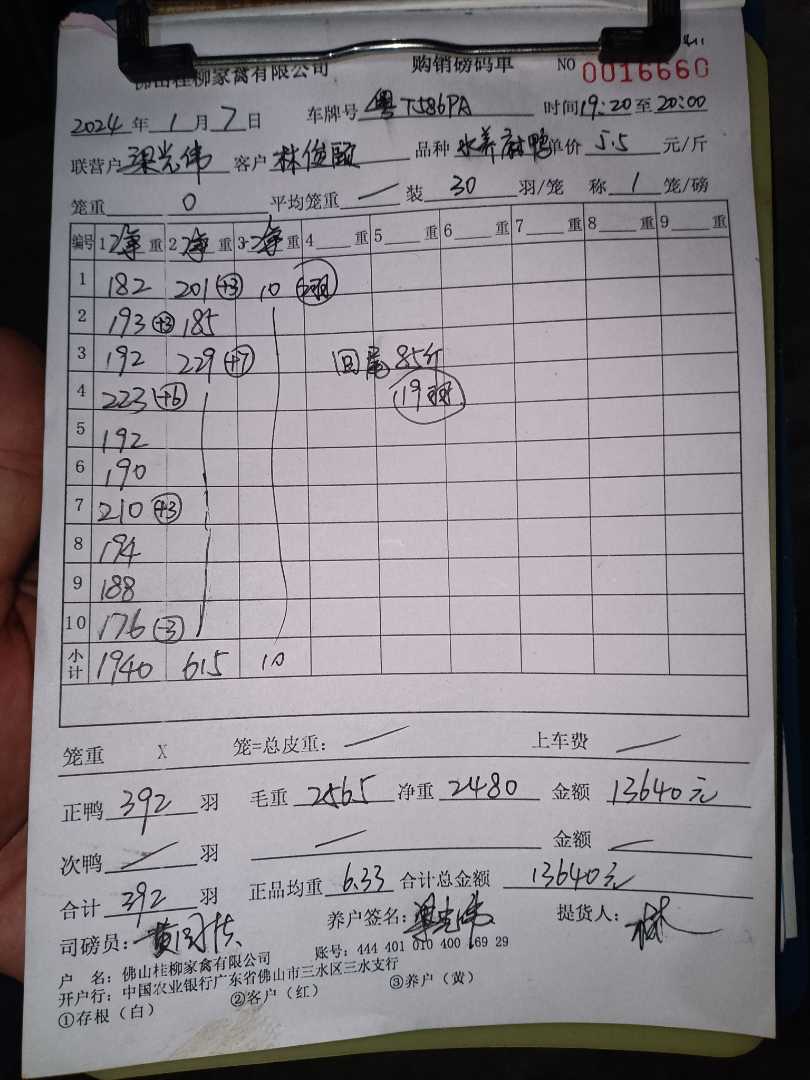 佛山桂柳家禽有限公司 购销磅码单 NO 0016660
2024 年 1 月 7 日 车牌号 粤T586PA 时间 19:20 至 20:00
联营户 梁光伟 客户 林俊 品种 水养麻鸭 单价 5.5 元/斤
笼重 0 平均笼重 — 装 30 羽/笼 称 1 笼/磅
编号 1 重 2 重 3 重 4 重 5 重 6 重 7 重 8 重 9 重
1 182 201 (+3) 10 (2羽)
2 193 (+3) 185
3 192 229 (+7) 回尾85斤
4 223 (+6) (19羽)
5 192
6 190
7 210 (+3)
8 194
9 188
10 176 (-3)
小计 1940 615 10
笼重 X 笼=总皮重: — 上车费 —
正鸭 392 羽 毛重 2565 净重 2480 金额 13640元
次鸭 — 羽 — 金额 —
合计 392 羽 正品均重 6.33 合计总金额 13640元
司磅员: 黄 养户签名: 梁光伟 提货人: 林
户 名: 佛山桂柳家禽有限公司 账号: 444 401 010 400 169 29
开户行: 中国农业银行广东省佛山市三水区三水支行
①存根（白） ②客户（红） ③养户（黄）